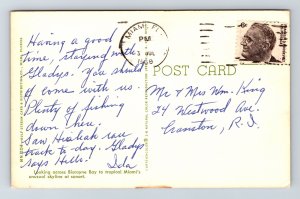 MIAMI, FL
PM
3 JUL
1968
6¢
POST CARD
Having a good
time, staying with
Gladys. You should
of come with us.
Plenty of fishing
down there.
Saw Hialeah race
track to day. Gladys
says Hello.
Ida
Looking across Biscayne Bay to tropical Miami's
unusual skyline at sunset.
Mr & Mrs Wm. King
24 Westwood Ave.
Cranston, R.I.